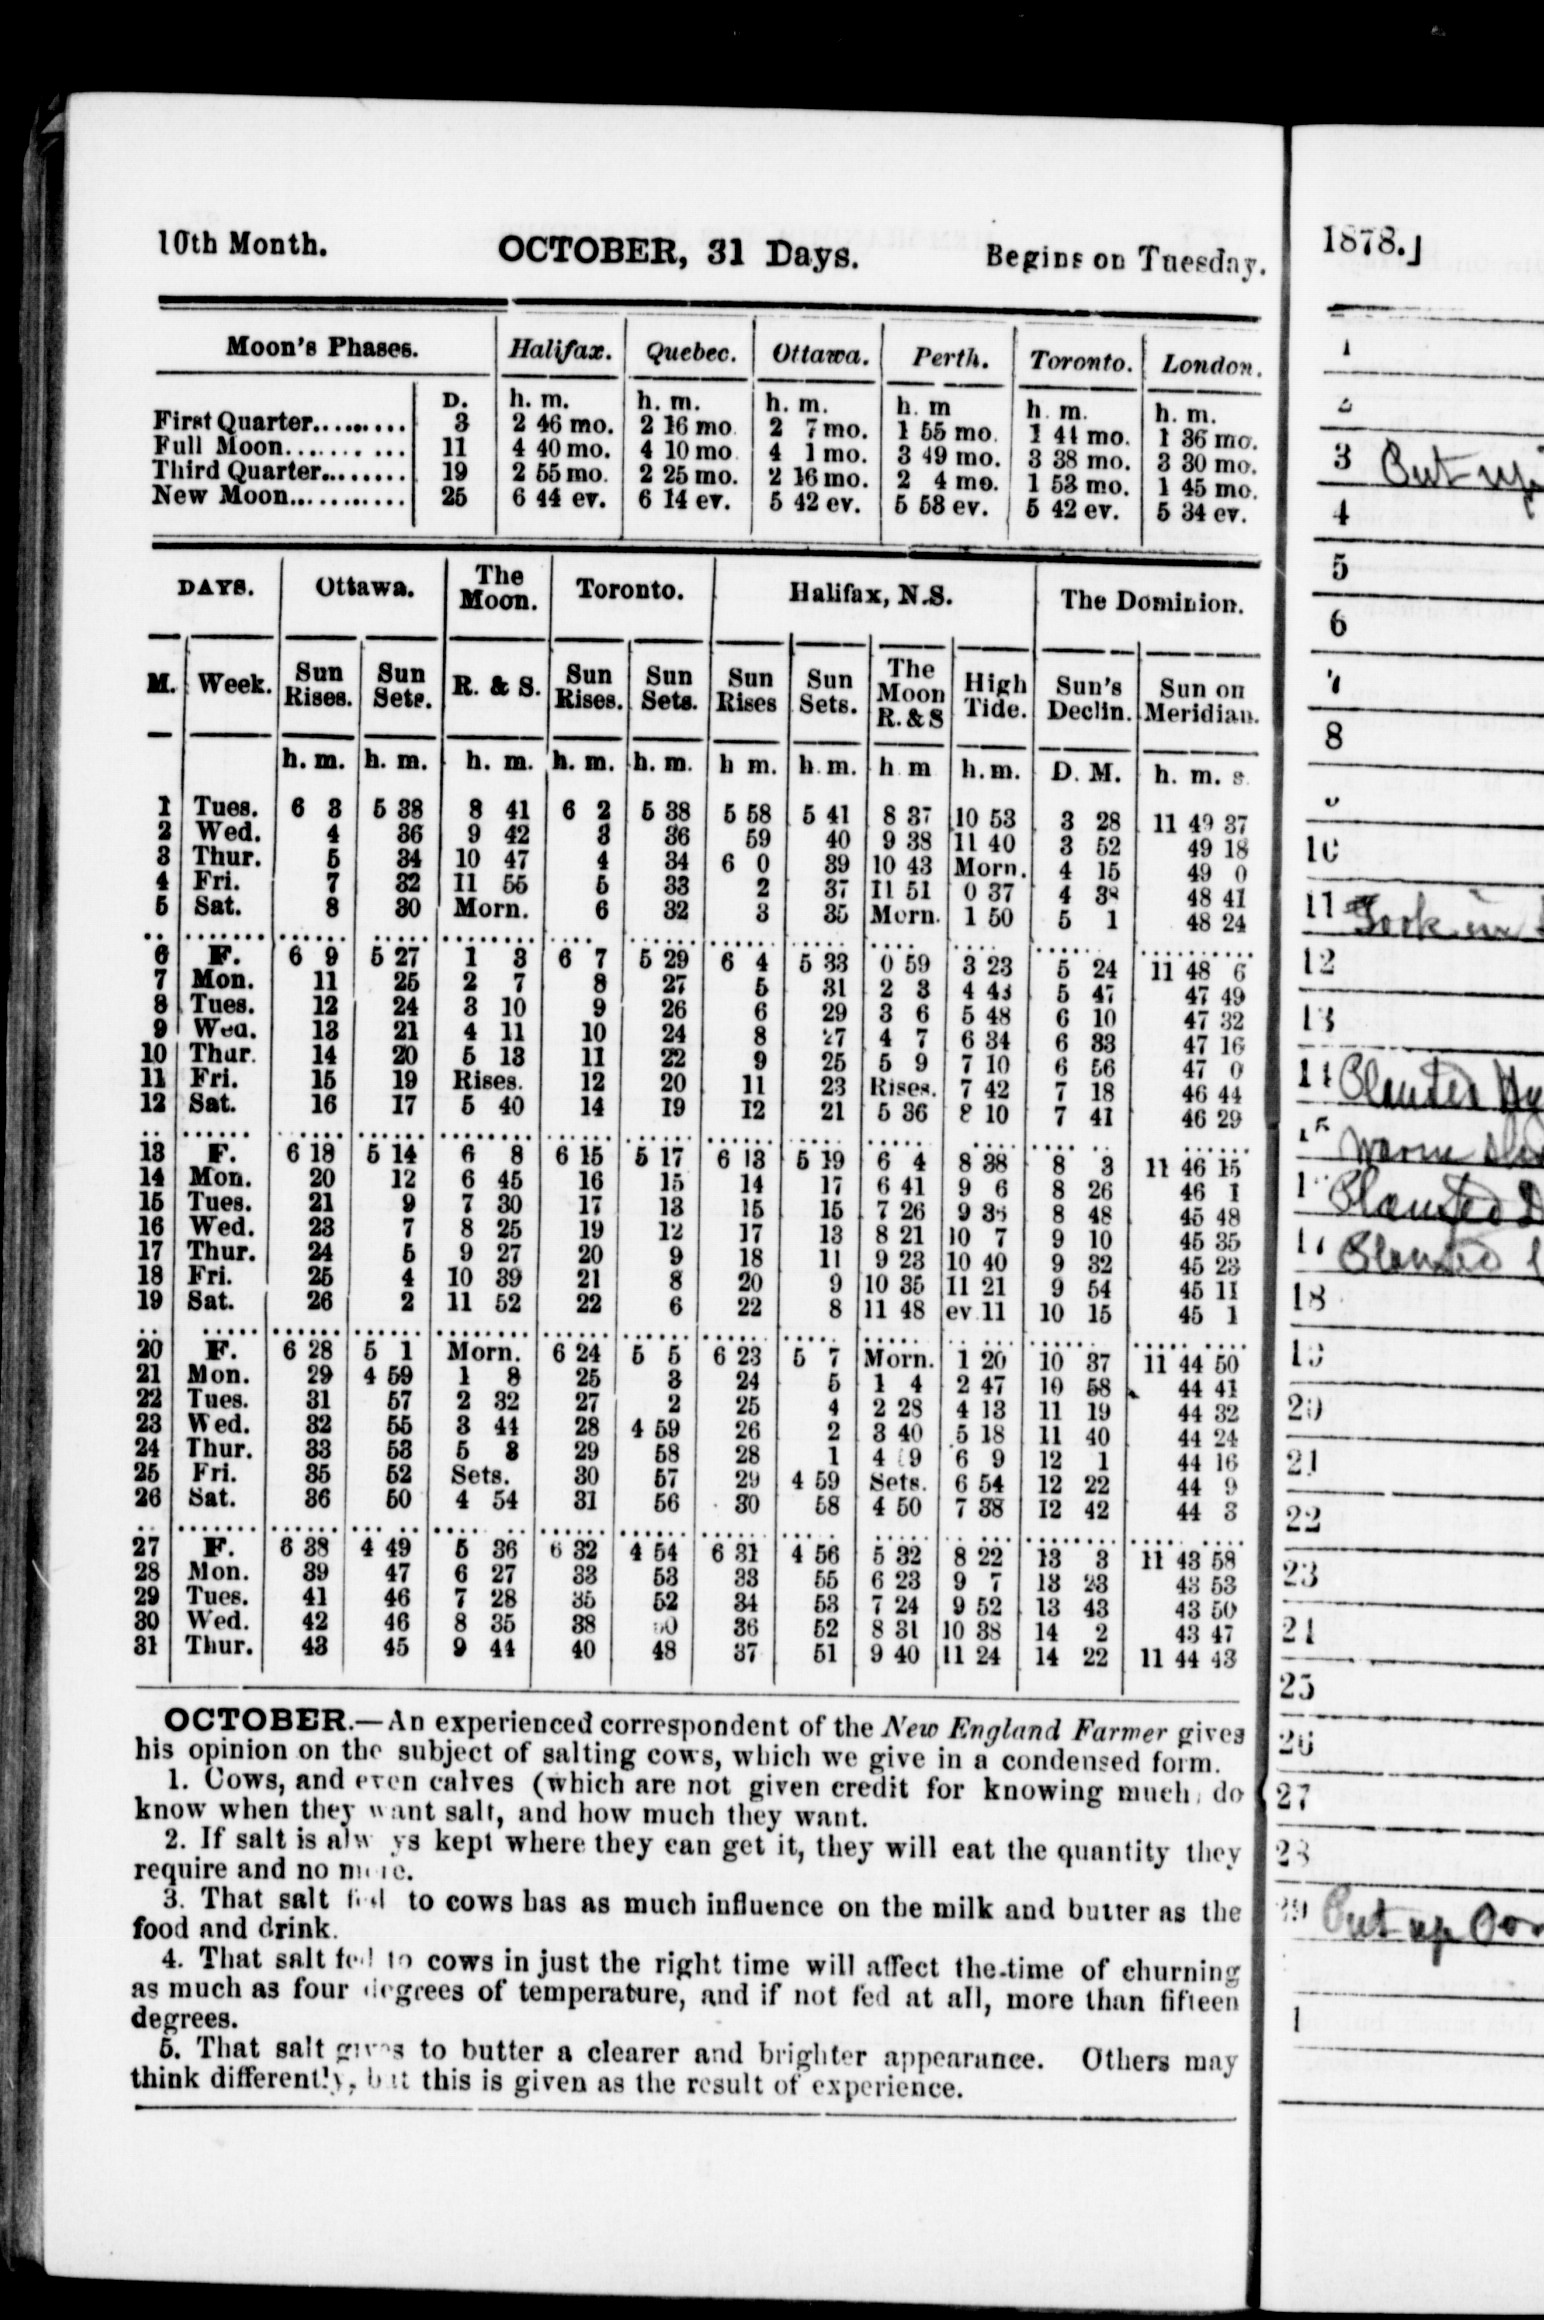 10th Month. OCTOBER, 31 Days. Begins on Tuesday.
Moon's Phases. Halifax. Quebec. Ottawa. Perth. Toronto. London.
D. h. m. h. m. h. m. h. m h. m. h. m.
First Quarter......... 3 2 46 mo. 2 16 mo. 2 7 mo. 1 55 mo. 1 44 mo. 1 36 mo.
Full Moon.......... 11 4 40 mo. 4 10 mo 4 1 mo. 3 49 mo. 3 38 mo. 3 30 mo.
Third Quarter........ 19 2 55 mo. 2 25 mo. 2 16 mo. 2 4 mo. 1 53 mo. 1 45 mo.
New Moon........... 25 6 44 ev. 6 14 ev. 5 42 ev. 5 53 ev. 5 42 ev. 5 34 ev.
DAYS. Ottawa. The Moon. Toronto. Halifax, N.S. The Dominion.
M. Week. Sun Rises. Sun Sets. R. & S. Sun Rises. Sun Sets. Sun Rises Sun Sets. The Moon R. & S High Tide. Sun's Declin. Sun on Meridian.
h. m. h. m. h. m. h. m. h. m. h m. h. m. h m h. m. D. M. h. m. s.
1 Tues. 6 3 5 38 8 41 6 2 5 38 5 58 5 41 8 37 10 53 3 28 11 49 37
2 Wed. 4 36 9 42 3 36 59 40 9 38 11 40 3 52 49 18
3 Thur. 5 34 10 47 4 34 6 0 39 10 43 Morn. 4 15 49 0
4 Fri. 7 32 11 55 5 33 2 37 11 51 0 37 4 38 48 41
5 Sat. 8 30 Morn. 6 32 3 35 Morn. 1 50 5 1 48 24
6 F. 6 9 5 27 1 3 6 7 5 29 6 4 5 33 0 59 3 23 5 24 11 48 6
7 Mon. 11 25 2 7 8 27 5 31 2 3 4 43 5 47 47 49
8 Tues. 12 24 3 10 9 26 6 29 3 6 5 48 6 10 47 32
9 Wed. 13 21 4 11 10 24 8 27 4 7 6 34 6 33 47 16
10 Thur. 14 20 5 13 11 22 9 25 5 9 7 10 6 56 47 0
11 Fri. 15 19 Rises. 12 20 11 23 Rises. 7 42 7 18 46 44
12 Sat. 16 17 5 40 14 19 12 21 5 36 8 10 7 41 46 29
13 F. 6 18 5 14 6 8 6 15 5 17 6 13 5 19 6 4 8 38 8 3 11 46 15
14 Mon. 20 12 6 45 16 15 14 17 6 41 9 6 8 26 46 1
15 Tues. 21 9 7 30 17 13 15 15 7 26 9 36 8 48 45 48
16 Wed. 23 7 8 25 19 12 17 13 8 21 10 7 9 10 45 35
17 Thur. 24 5 9 27 20 9 18 11 9 23 10 40 9 32 45 23
18 Fri. 25 4 10 39 21 8 20 9 10 35 11 21 9 54 45 11
19 Sat. 26 2 11 52 22 6 22 8 11 48 ev.11 10 15 45 1
20 F. 6 28 5 1 Morn. 6 24 5 5 6 23 5 7 Morn. 1 20 10 37 11 44 50
21 Mon. 29 4 59 1 8 25 3 24 5 1 4 2 47 10 58 44 41
22 Tues. 31 57 2 32 27 2 25 4 2 28 4 13 11 19 44 32
23 Wed. 32 55 3 44 28 4 59 26 2 3 40 5 18 11 40 44 24
24 Thur. 33 53 5 8 29 58 28 1 4 9 6 9 12 1 44 16
25 Fri. 35 52 Sets. 30 57 29 4 59 Sets. 6 54 12 22 44 9
26 Sat. 36 50 4 54 31 56 30 58 4 50 7 38 12 42 44 3
27 F. 6 38 4 49 5 36 6 32 4 54 6 31 4 56 5 32 8 22 13 3 11 43 58
28 Mon. 39 47 6 27 33 53 33 55 6 23 9 7 13 23 43 53
29 Tues. 41 46 7 28 35 52 34 53 7 24 9 52 13 43 43 50
30 Wed. 42 46 8 35 38 50 36 52 8 31 10 38 14 2 43 47
31 Thur. 43 45 9 44 40 48 37 51 9 40 11 24 14 22 11 44 43
OCTOBER.—An experienced correspondent of the New England Farmer gives
his opinion on the subject of salting cows, which we give in a condensed form.
1. Cows, and even calves (which are not given credit for knowing much, do
know when they want salt, and how much they want.
2. If salt is alw ys kept where they can get it, they will eat the quantity they
require and no more.
3. That salt fed to cows has as much influence on the milk and butter as the
food and drink.
4. That salt fed to cows in just the right time will affect the time of churning
as much as four degrees of temperature, and if not fed at all, more than fifteen
degrees.
5. That salt gives to butter a clearer and brighter appearance. Others may
think differently, but this is given as the result of experience.
1878.]
1
2
3 Put up
4
5
6
7
8
10
11 Took in
12
13
14 Planted
15 Warm
1 Planted
17 Planted
18
19
20
21
22
23
24
25
26
27
28
29 Put up
1